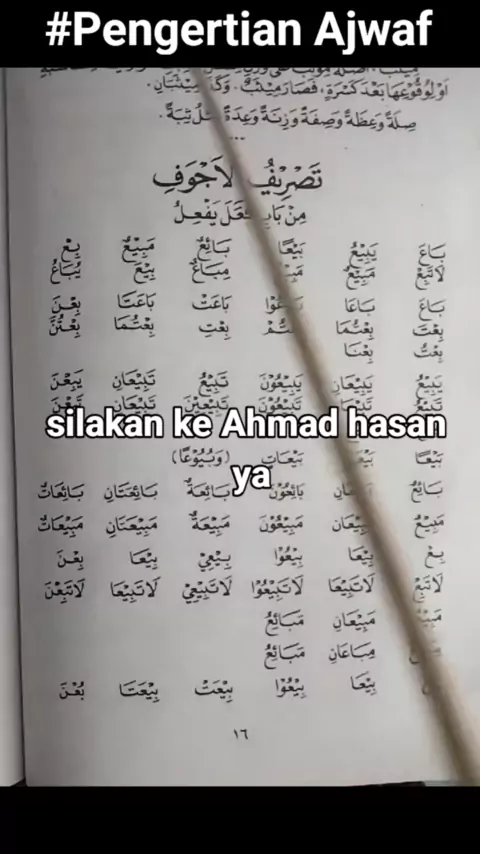 #Pengertian Ajwaf
أَوْ لِوُقُوْعِهَا بَعْدَ كَسْرَةٍ، فَصَارَ مِيْثَبٌ.
صِلَةً وَعِظَةً وَصِفَةً وَزِنَةً وَعِدَةً ثِبَةً.
تَصْرِيْفُ الْاَجْوَفِ
مِنْ بَابِ فَعَلَ يَفْعِلُ
بَاعَ يَبِيْعُ بَيْعًا بَائِعٌ مَبِيْعٌ بِعْ
لَاتَبِعْ مَبِيْعٌ مِبَاعٌ بِيْعَ يُبَاعُ
بَاعَ بَاعَا بَاعُوْا بَاعَتْ بَاعَتَا بِعْنَ
بِعْتَ بِعْتُمَا بِعْتُمْ بِعْتِ بِعْتُمَا بِعْتُنَّ
بِعْتُ بِعْنَا
يَبِيْعُ يَبِيْعَانِ يَبِيْعُوْنَ تَبِيْعُ تَبِيْعَانِ يَبِعْنَ
تَبِيْعُ تَبِيْعُوْنَ تَبِيْعِيْنَ تَبِيْعَانِ تَبِعْنَ
silakan ke Ahmad hasan
بَيْعًا بَيْعَاتٍ (وَبُيُوْعًا)
ya
بَائِعٌ بَائِعُوْنَ بَائِعَةٌ بَائِعَتَانِ بَائِعَاتٌ
مَبِيْعٌ مَبِيْعَانِ مَبِيْعُوْنَ مَبِيْعَةٌ مَبِيْعَتَانِ مَبِيْعَاتٌ
بِعْ بِيْعَا بِيْعُوْا بِيْعِيْ بِيْعَا بِعْنَ
لَاتَبِعْ لَاتَبِيْعَا لَاتَبِيْعُوْا لَاتَبِيْعِيْ لَاتَبِيْعَا لَاتَبِعْنَ
مَبِيْعَانِ مَبَائِعُ
مِبَاعَانِ مَبَائِعُ
بِيْعَا بِيْعُوْا بِيْعَتْ بِيْعَتَا بُعْنَ
١٦